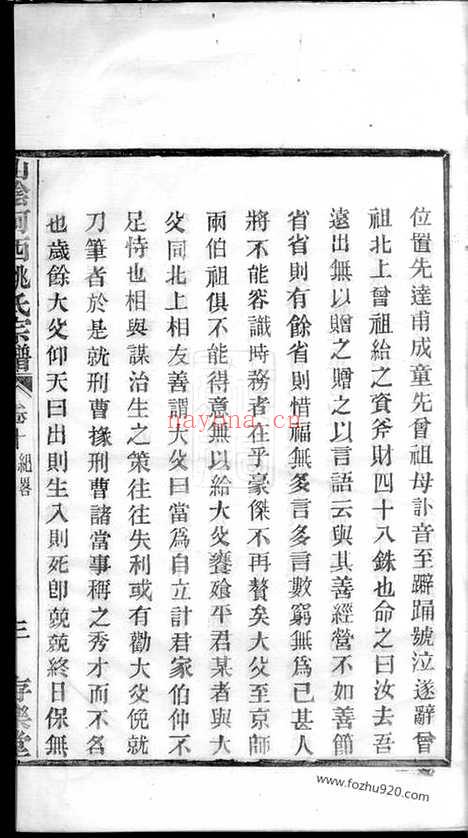 位置先達甫成童先曾祖母訃音至躃踊號泣遂辭曾
祖北上曾祖給之資斧財四十八銖也命之曰汝去吾
遠出無以贈之贈之以言語云與其善經營不如善節
省省則有餘省則惜福無多言多言數窮無爲已甚人
將不能容識時務者在乎豪傑不再贅矣大父至京師
兩伯祖俱不能得意無以給大父饔飱平君某者與大
父同北上相友善謂大父曰當爲自立計君家伯仲不
足恃也相與謀治生之策往往失利或有勸大父俛就
刀筆者於是就刑曹掾刑曹諸當事稱之秀才而不名
也歲餘大父仰天曰出則生入則死卽兢兢終日保無
山陰河西姚氏宗譜 卷十 紀畧 三
nayona.cn
www.fozhu920.com